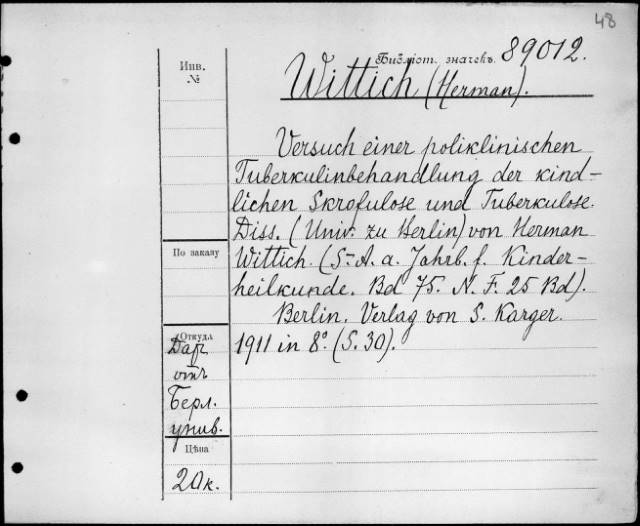 48
Инв.
№
Библіот. значекъ 89012.
Wittich (Herman).
Versuch einer poliklinischen
Tuberkulinbehandlung der kind-
lichen Skrofulose und Tuberkulose.
Diss. (Univ. zu Berlin) von Herman
По заказу
Wittich. (S-A. a. Jahrb. f. Kinder-
heilkunde. Bd 75. N. F. 25 Bd).
Berlin. Verlag von S. Karger.
1911 in 8° (S. 30).
Откуда
Дар
отъ
Берл.
унив.
Цѣна
20 к.